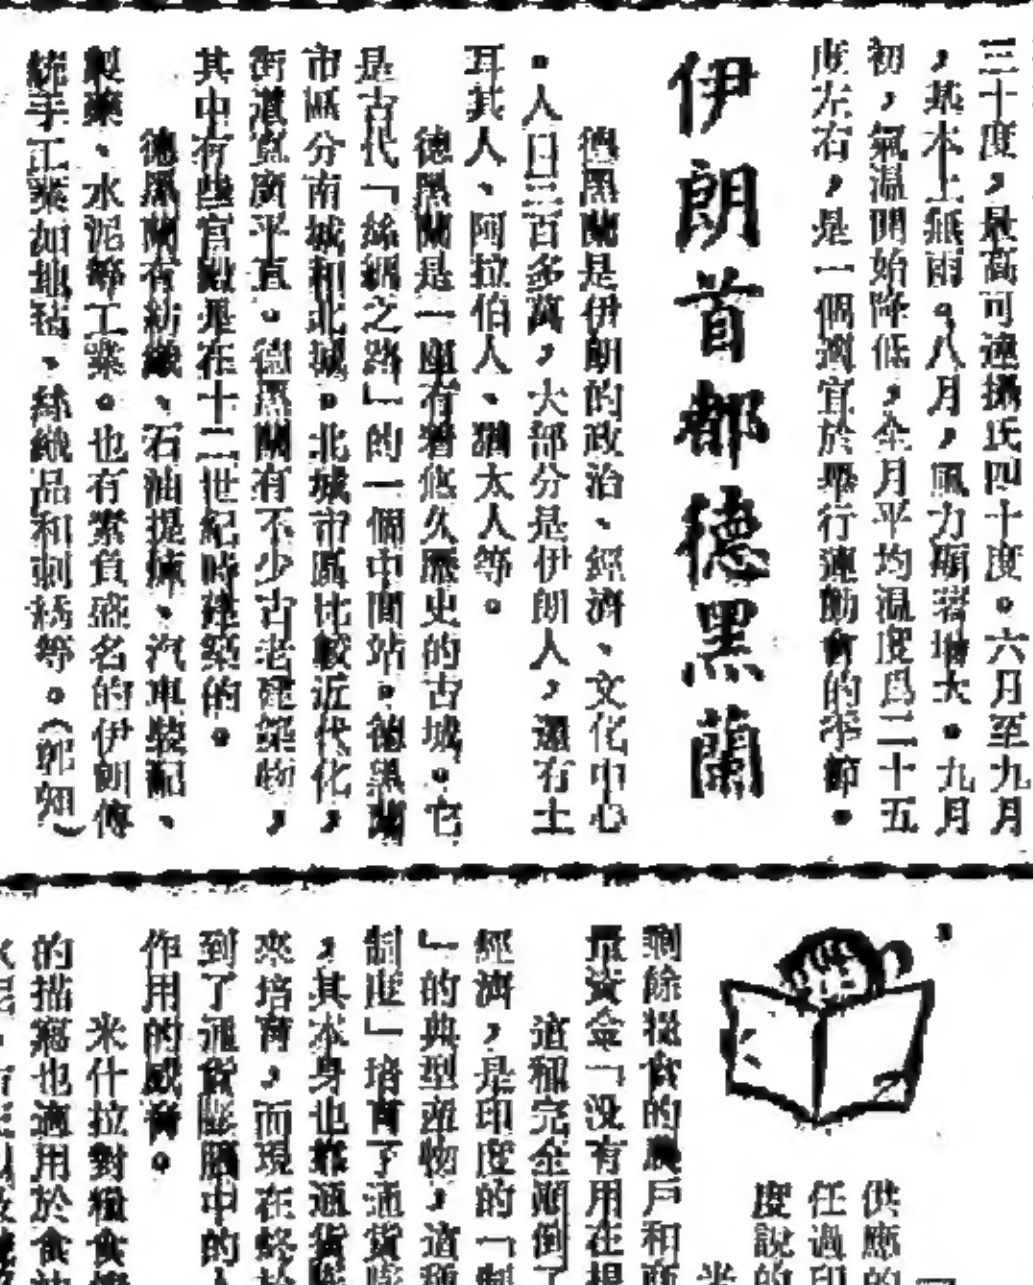 三十度，最高可達攝氏四十度。六月至九月
，基本上無雨。八月，風力顯著增大。九月
初，氣溫開始降低，全月平均溫度爲二十五
度左右，是一個適宜於舉行運動會的季節。
伊朗首都德黑蘭
德黑蘭是伊朗的政治、經濟、文化中心
。人口三百多萬，大部分是伊朗人，還有土
耳其人、阿拉伯人、猶太人等。
德黑蘭是一座有着悠久歷史的古城。它
是古代「絲綢之路」的一個中間站。德黑蘭
市區分南城和北城。北城市區比較近代化，
街道寬廣平直。德黑蘭有不少古老建築物，
其中有些宮殿是在十二世紀時建築的。
德黑蘭有紡織、石油提煉、汽車裝配、
製藥、水泥等工業。也有素負盛名的伊朗傳
統手工業如地毯、絲織品和刺綉等。
供應的
任過印
度說的
剩餘糧食的農戶和商
資金「没有用在提
這種完全顛倒了
經濟，是印度的「
」的典型產物，這種
制度」培育了通貨膨
，其本身也靠通貨膨
來培育，而現在終於
到了通貨膨脹中的人
作用的威脅。
米什拉對糧食
的描寫也適用於食油